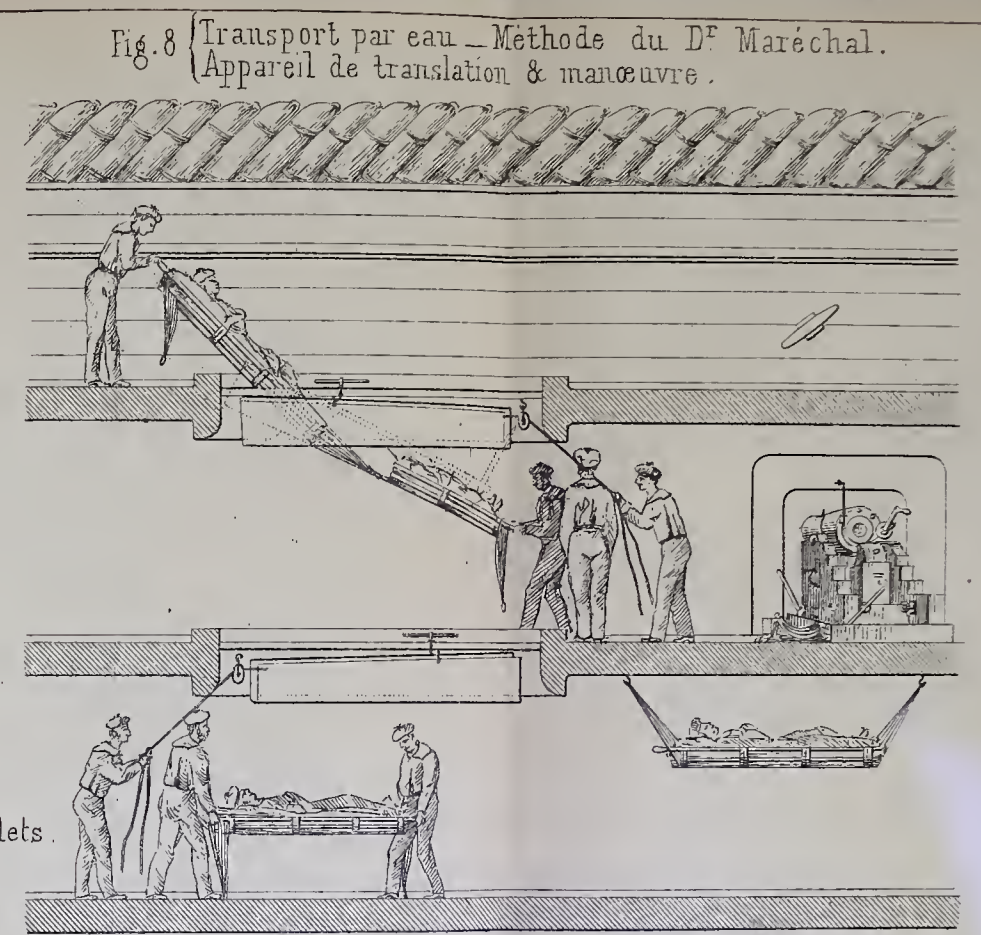 Fig. 8 { Transport par eau _ Méthode du Dr Maréchal.
Appareil de translation & manœuvre.
lets.